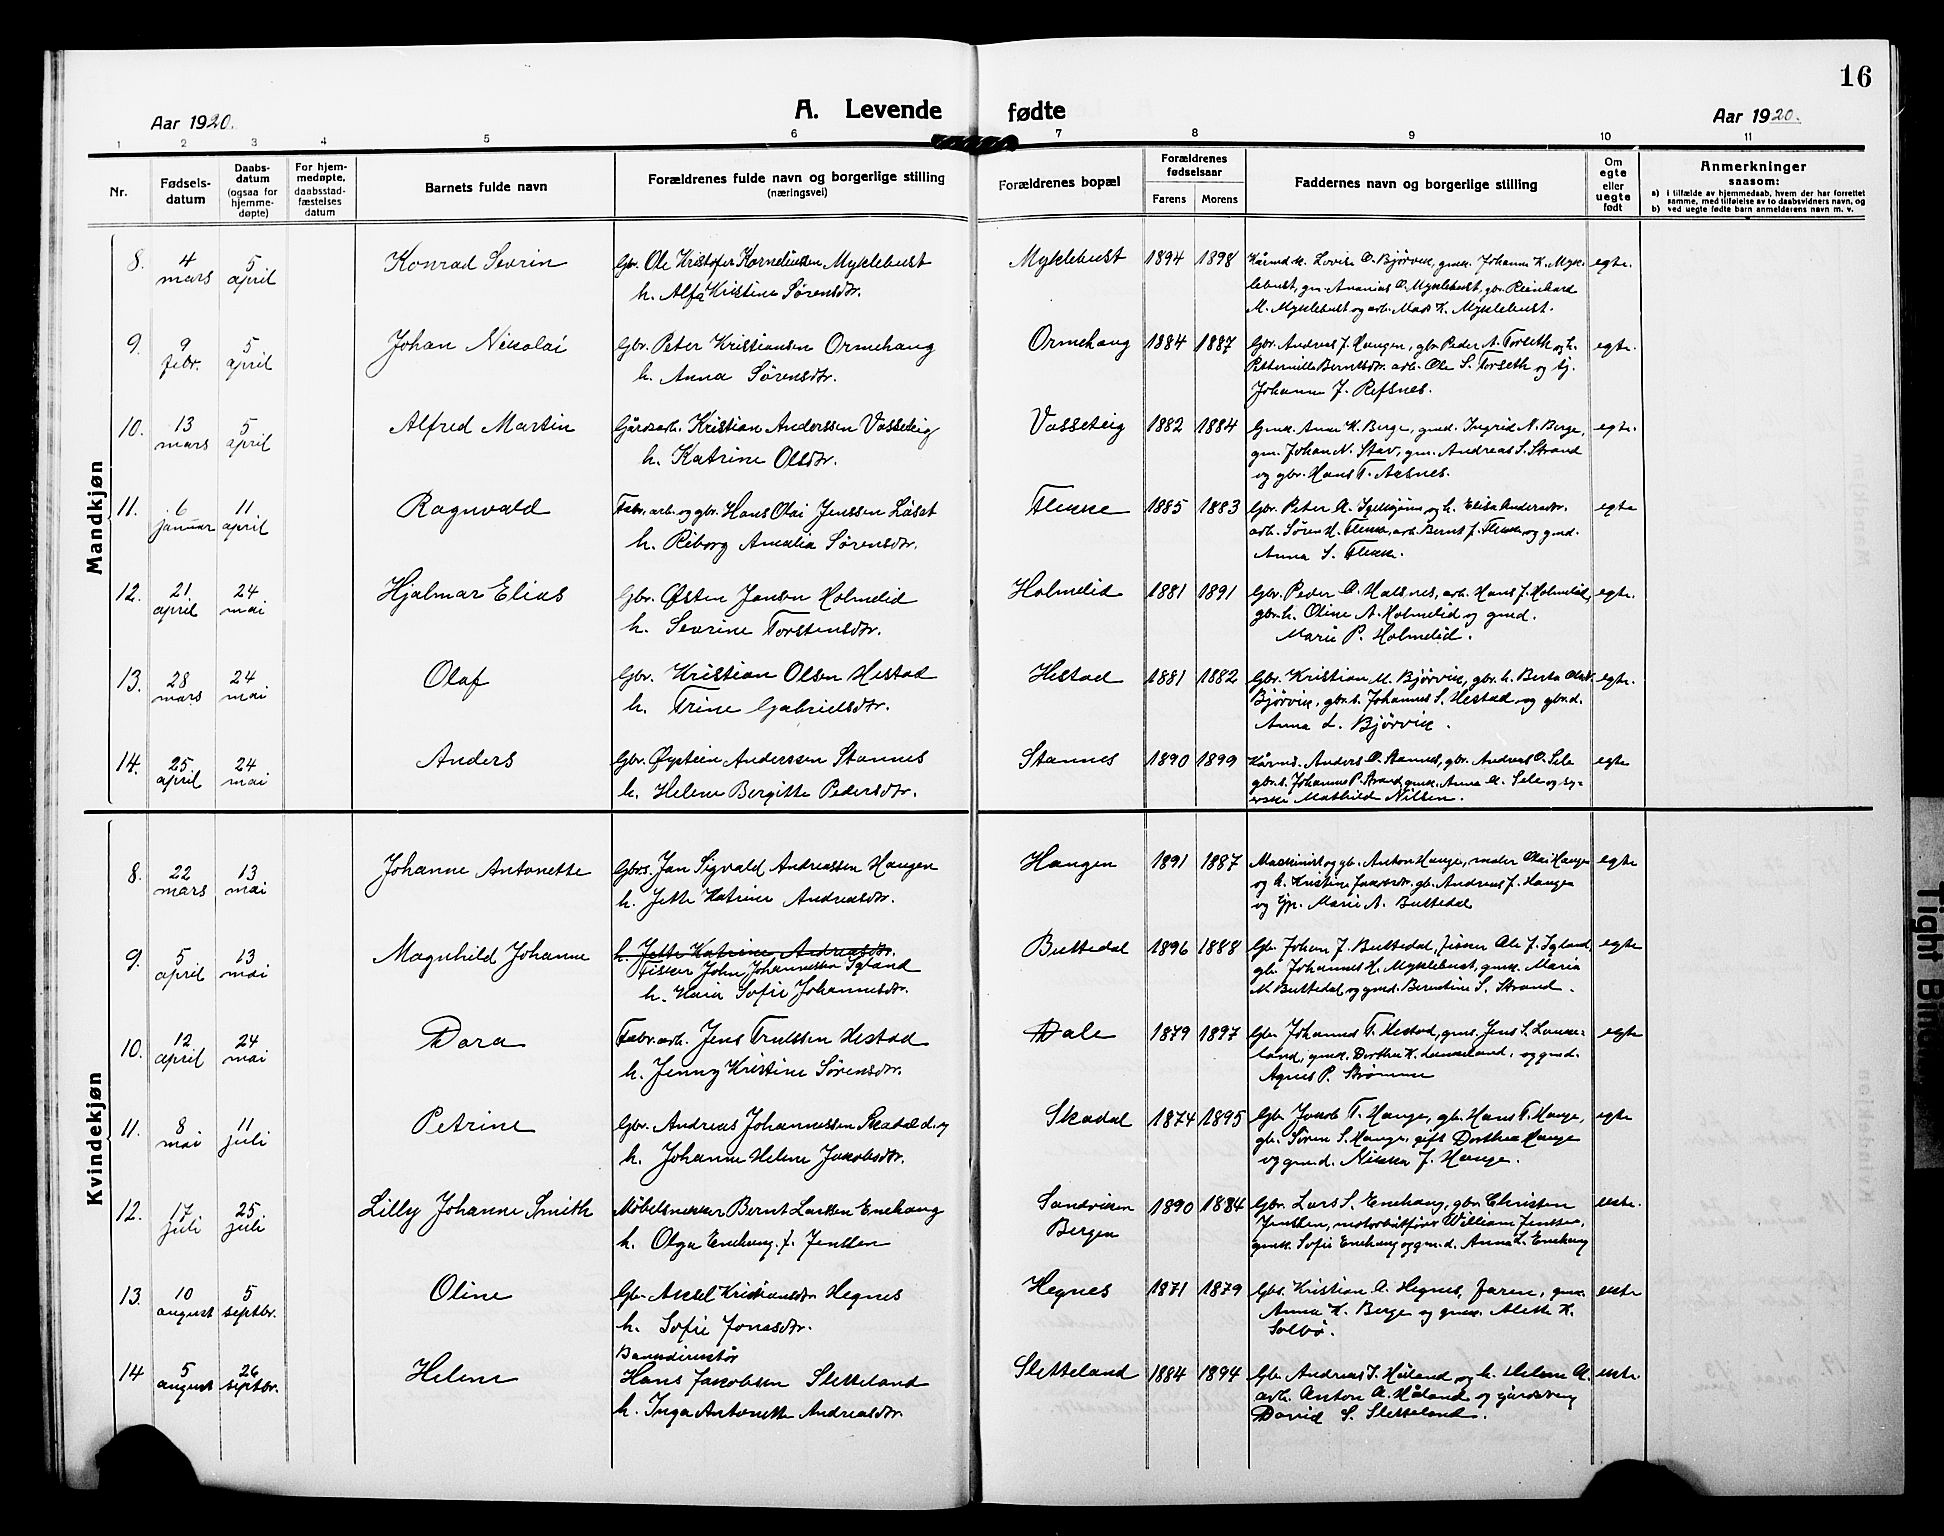 16
A. Levende fødte
Aar 1920. Aar 1920.
1 2 3 4 5 6 7 8 9 10 11
Nr.
Fødsels-
datum
Daabs-
datum
(ogsaa for
hjemme-
døpte)
For hjem-
medøpte,
daabsstad-
fæstelses
datum
Barnets fulde navn
Forældrenes fulde navn og borgerlige stilling
(næringsvei)
Forældrenes bopæl
Forældrenes
fødselsaar
Farens Morens
Faddernes navn og borgerlige stilling
Om
egte
eller
uegte
født
Anmerkninger
saasom:
a) i tilfælde av hjemmedaab, hvem der har forrettet
samme, med tilføielse av to daabsvidners navn, og
b) ved uegte fødte barn anmelderens navn m. v.
Mandkjøn
8. 4 mars 5 april Konrad Sevrin Gbr. Ole Kristofer Korneliussen Myklebust Myklebust 1894 1898 Kårmd. k. Lovise O. Bjørvik, gmk. Johanne K. Myk- egte.
h. Alfa Kristine Sørensdtr. lebust, gm. Ananias O. Myklebust, gbr. Reinhard
M. Myklebust og arb. Mads K. Myklebust.
9. 9 febr. 5 april Johan Nikolai Gbr. Peter Kristiansen Ormehaug Ormehaug 1884 1887 Gbr. Andreas J. Haugen, gbr. Peder A. Torseth og h. egte.
h. Anna Sørensdtr. Petternille Berntsdtr. arb. Ole S. Torseth og tj.
Johanne J. Refsnes.
10. 13 mars 5 april Alfred Martin Gårdsarb. Kristian Anderssen Vasseteig Vasseteig 1882 1884 Gmk. Anne K. Berge, gmd. Ingrid N. Berge, egte.
h. Katrine Olsdtr. gm. Johan N. Stav, gm. Andreas S. Strand
og gbr. Hans T. Aasnes.
11. 6 januar 11 april Ragnvald Fabr. arb. og gbr. Hans Olai Jenssen Låset Flekke 1885 1883 Gbr. Peter A. og h. Elisa Andersdtr. egte
h. Riborg Amalia Sørensdtr. arb. Søren H. Flekke, arb. Bernt J. Flekke og gmd.
Anna S. Flekke.
12. 21 april 24 mai Hjalmar Elias Gbr. Østen Jansen Holmelid Holmelid 1881 1891 Gbr. Peder O. Halsnes, arb. Hans J. Holmelid, egte.
h. Sevrine Torstensdtr. gbr. h. Oline A. Holmelid og gmd.
Marie P. Holmelid.
13. 28 mars 24 mai Olaf Gbr. Kristian Olsen Hestad Hestad 1881 1882 Gbr. Kristian M. Bjørvik, gbr. h. Berta Olsdtr. egte.
h. Trine Gabrielsdtr. Bjørvik, gbr. s. Johannes S. Hestad og gbr. d.
Anna L. Bjørvik.
14. 25 april 24 mai Anders Gbr. Øystein Anderssen Stannes Stannes 1890 1899 Kårmd. Anders O. Stannes, gbr. Andreas O. Sele egte
h. Helene Bergitte Pedersdtr. gbr. s. Johannes P. Strand, gmk. Anna A. Sele og sy-
erske Mathilde Nilsen.
Kvindekjøn
8. 22 mars 13 mai Johanne Antonette Gbrs. Jan Sigvald Andreassen Haugen Haugen 1891 1887 Maskinist og gb. Anton Hauge, maler Olai Haugen egte
h. Jette Katrine Andreasdtr. og h. Kristine Jakobsdtr. gb. Andreas J. Haugen
og tjp. Marie A. Buttedal
9. 5 april 13 mai Magnhild Johanne h. Jette Katrine Andreasdtr. Buttedal 1896 1888 Gb. Johan J. Buttedal, fisker Ole J. Igland, egte
Fisker John Johannessen Igland gb. Johannes H. Myklebust, gmk. Maria
h. Kaia Sofie Johannesdtr. M. Buttedal og gmd. Berentine S. Strand.
10. 12 april 24 mai Dora Fabr. arb. Jens Trulssen Hestad Dale 1879 1897 Gbr. Johannes T. Hestad, gms. Jens S. Laukeland egte
h. Jenny Kristine Sørensdtr. gmk. Dorthea K. Laukeland, og gmd.
Agnes P. Strømme
11. 8 mai 11 juli Petrine Gbr. Andreas Johannessen Skadal d.y Skadal 1874 1895 Gb. Jakob T. Hauge, gb. Hans T. Hauge, egte
h. Johanne Helene Jakobsdtr. gb. Søren S. Hauge, gift Dorthea Hauge
og gm.d. Nikka J. Hauge.
12. 17 juli 25 juli Lilly Johanne Smith Møbelsnekker Bernt Larssen Enehaug Sandviken 1890 1884 Gbr. Lars S. Enehaug, gbr. Christen ekte.
h. Olga Enehaug f. Jenssen Bergen Jenssen, motorbåtfører William Jenssen,
gmk. Sofie Enehaug og gm.d. Anna L. Enehaug
13. 10 august 5 septbr. Oline Gbr. Aksel Kristiansdtr Hegnes Hegnes 1871 1879 Gbs. Kristian A. Hegnes, faren, gmk. ekte
h. Sofie Jonasdtr. Anna K. Berge og gmk. Alette K.
Solbø.
14 5 august 26 septbr. Helene Bankdirektør
Hans Jakobsen Sletteland Sletteland 1884 1894 Gb. Andreas I. Håland og h. Helene A. ekte
h. Inga Antonette Andreasdtr. arb. Anton A. Håland og gårdsbrug
David S. Sletteland.